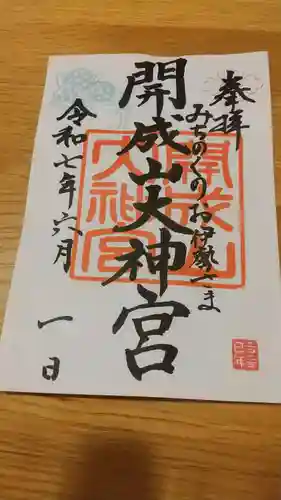 奉拝
みちのくのお伊勢さま
開成山大神宮
令和七年六月
一日
開成山
大神宮